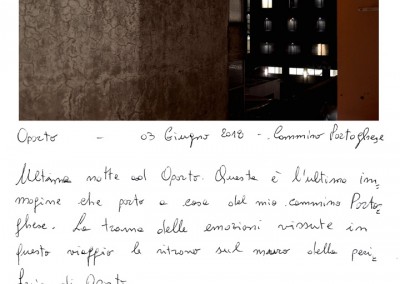 Oporto - 03 Giugno 2018 - Cammino Portoghese
Ultima notte ad Oporto. Questa è l'ultima im=
magine che porto a casa del mio cammino Porto=
ghese. La trama delle emozioni vissute in
questo viaggio le ritrovo sul muro della peri=
feria di Oporto